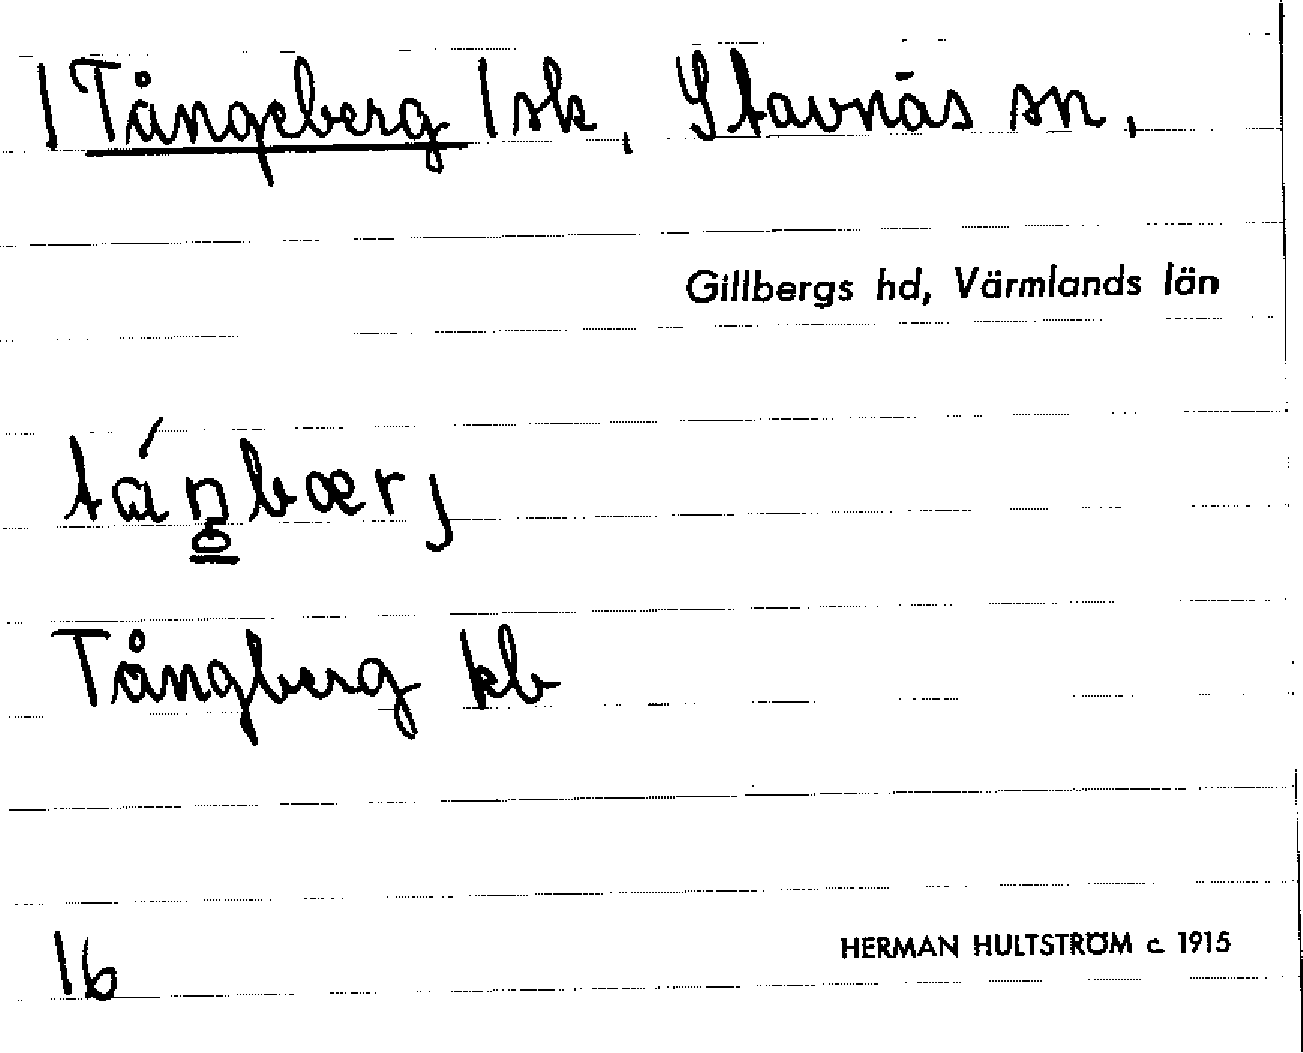 | Tångeberg | sk, Stavnäs sn,
Gillbergs hd, Värmlands län
Tångberg kb
16
HERMAN HULTSTRÖM c. 1915